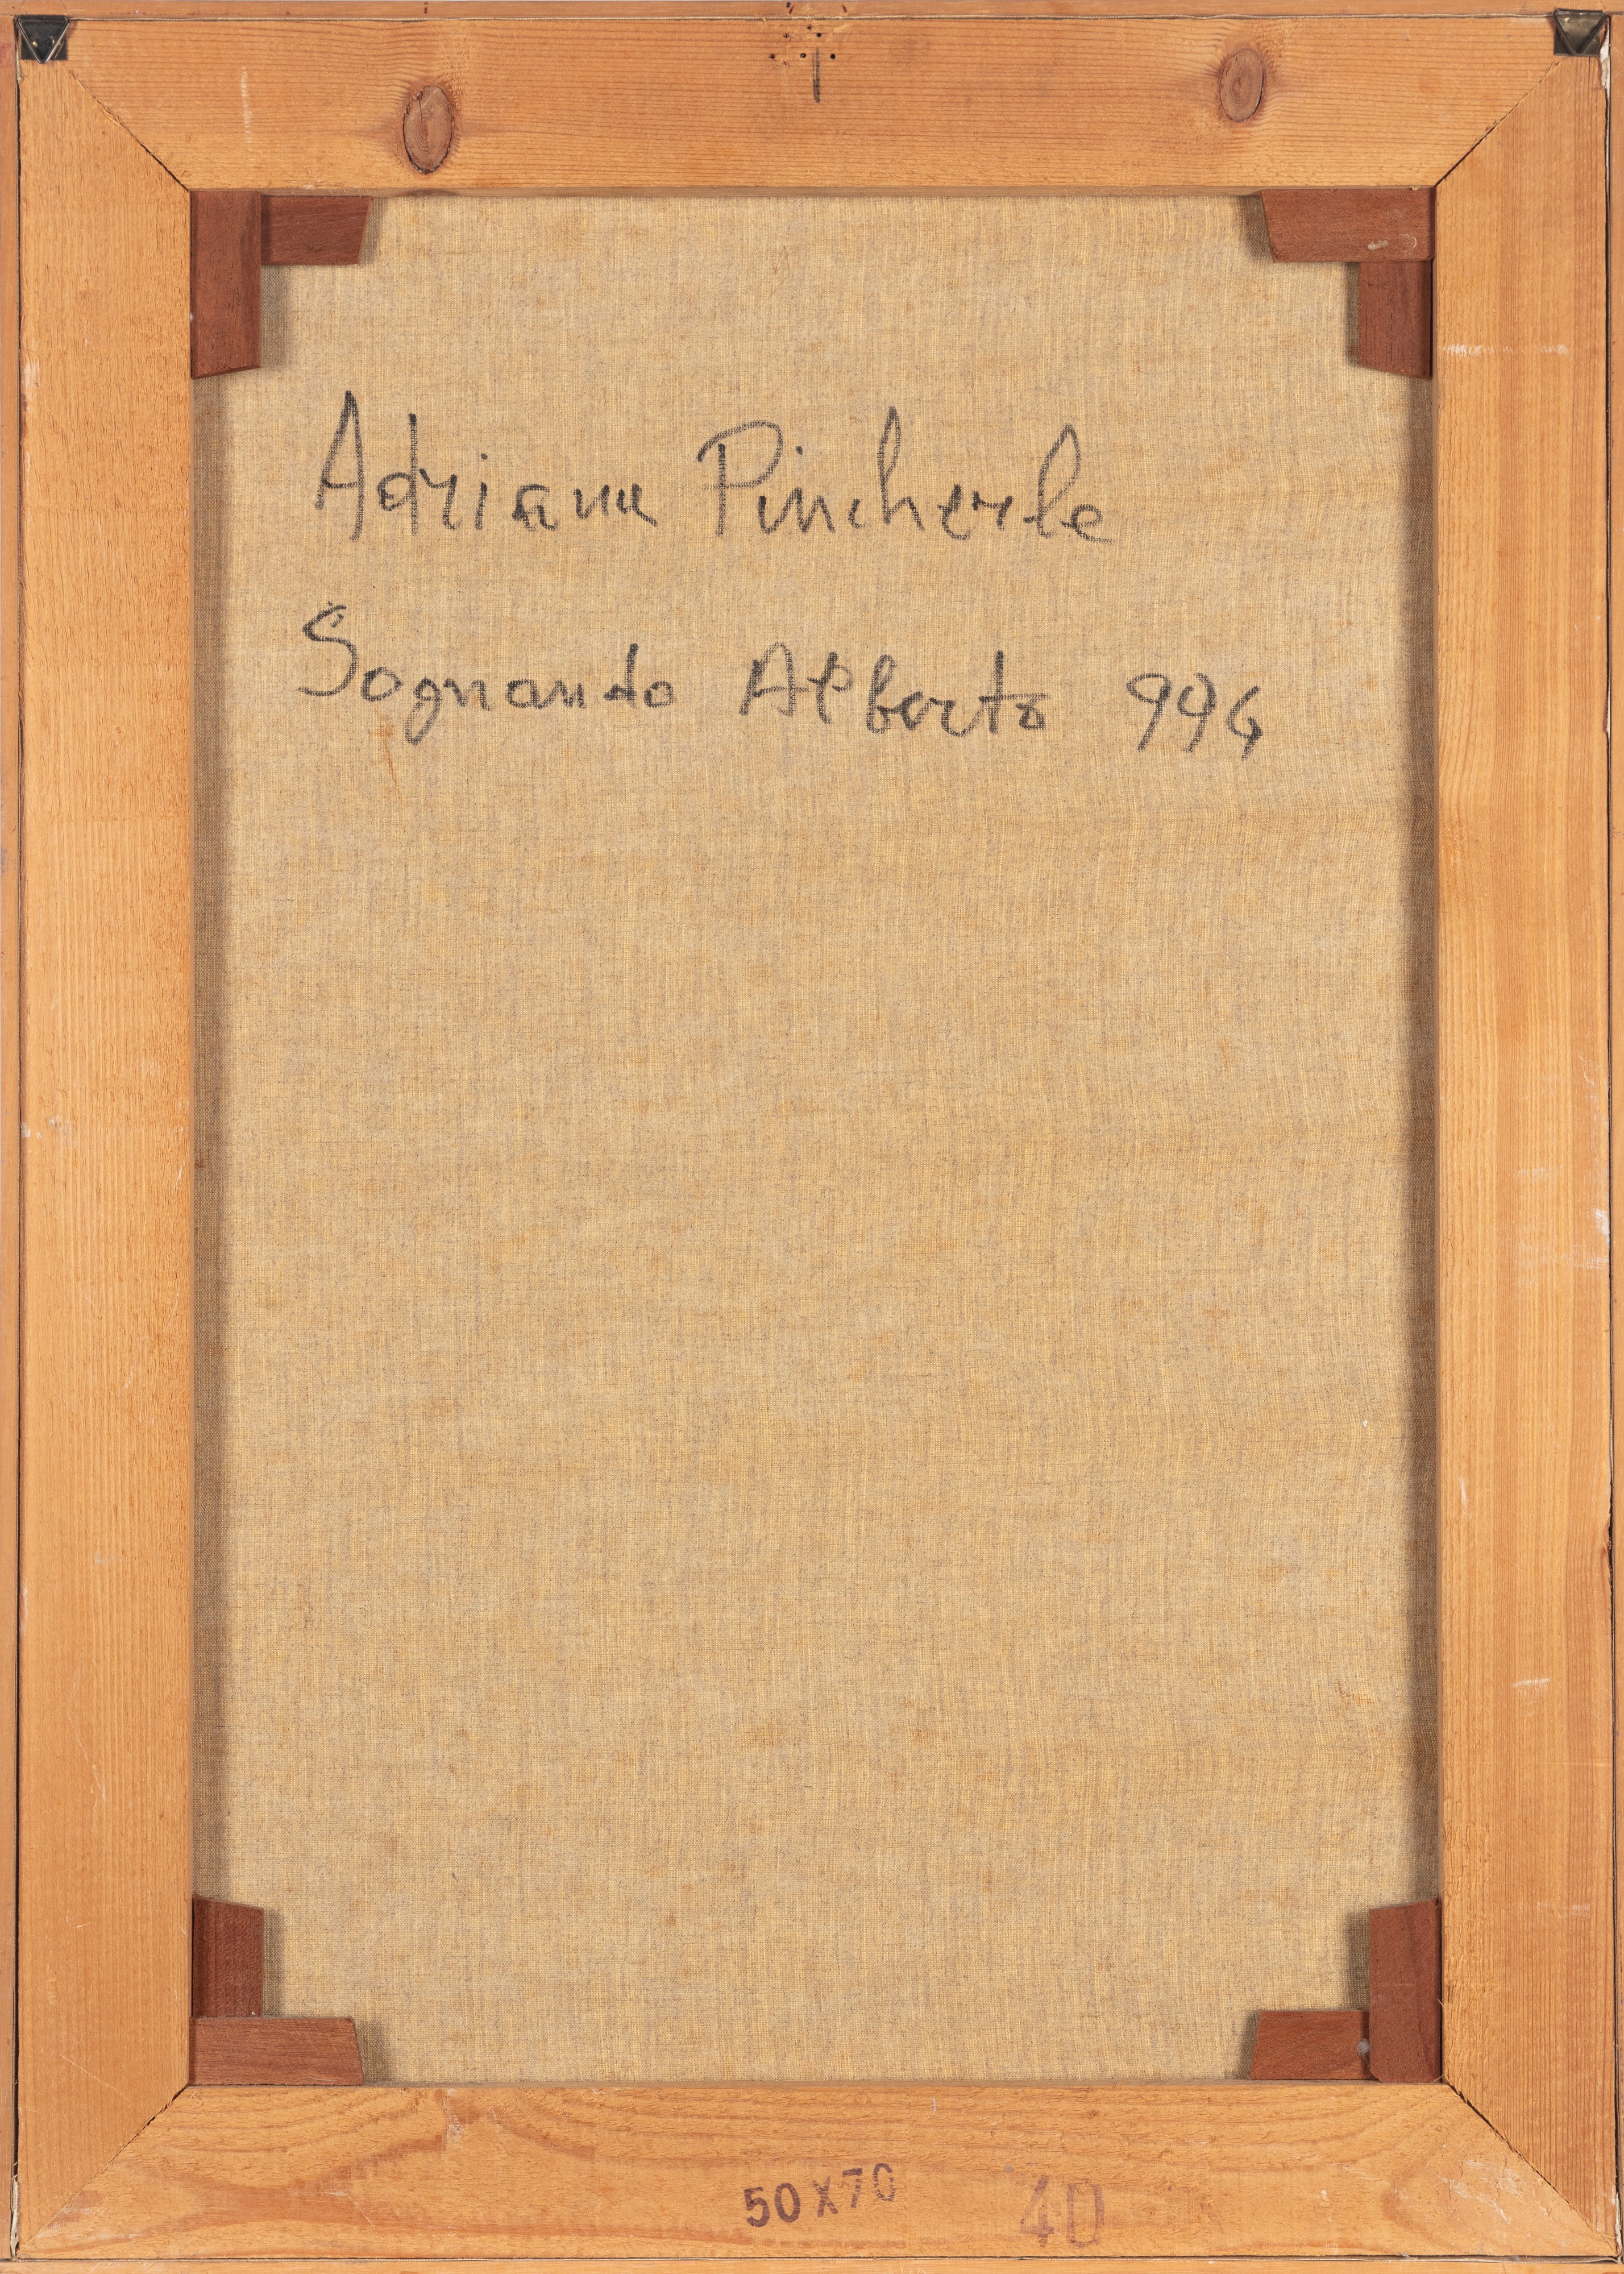 Adriana Pincherle
Sognando Alberto 994
50X70
40